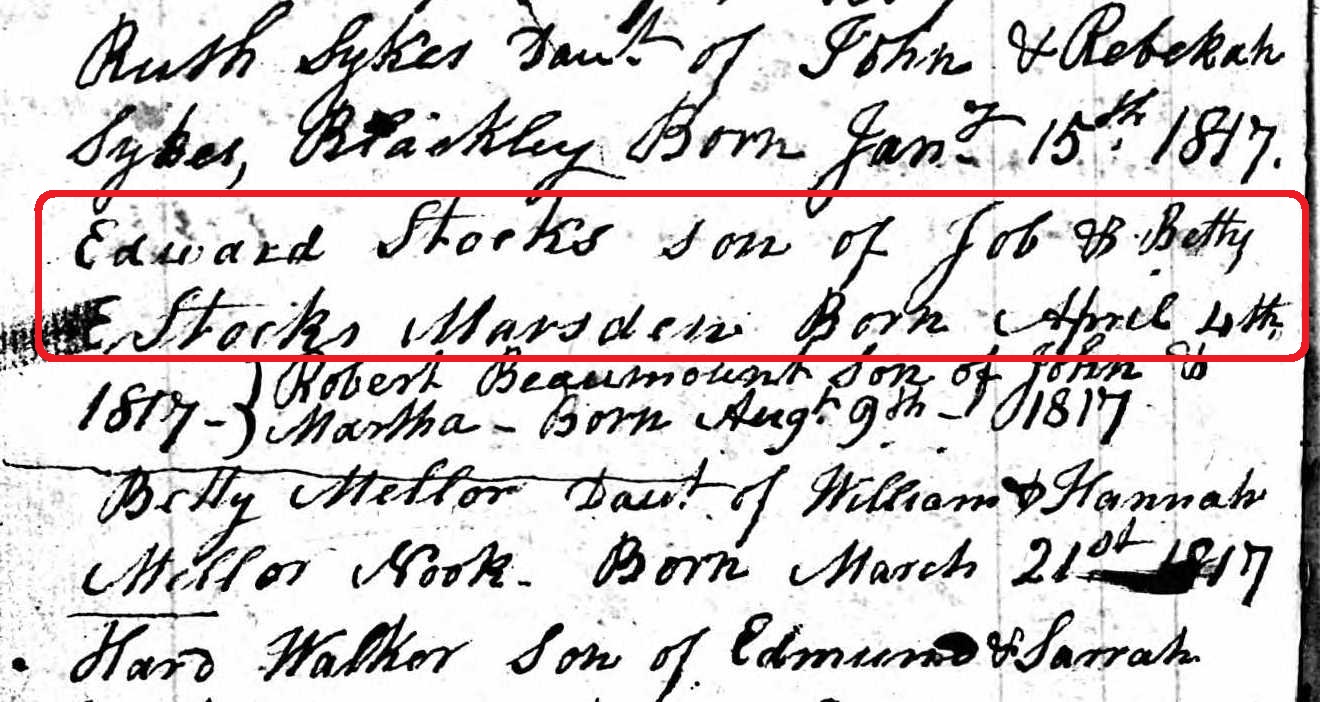 Ruth Sykes Daut. of John & Rebekah
Sykes, Blackley Born Jany 15th. 1817.
Edward Stocks son of Job & Betty
E Stocks Marsden Born April 4th
1817-} Robert Beaumount son of John &
Martha - Born Augt. 9th - 1817
Betty Mellor Daut. of William & Hannah
Mellor Nook. Born March 21st 1817
Walker Son of Edmund & Sarrah